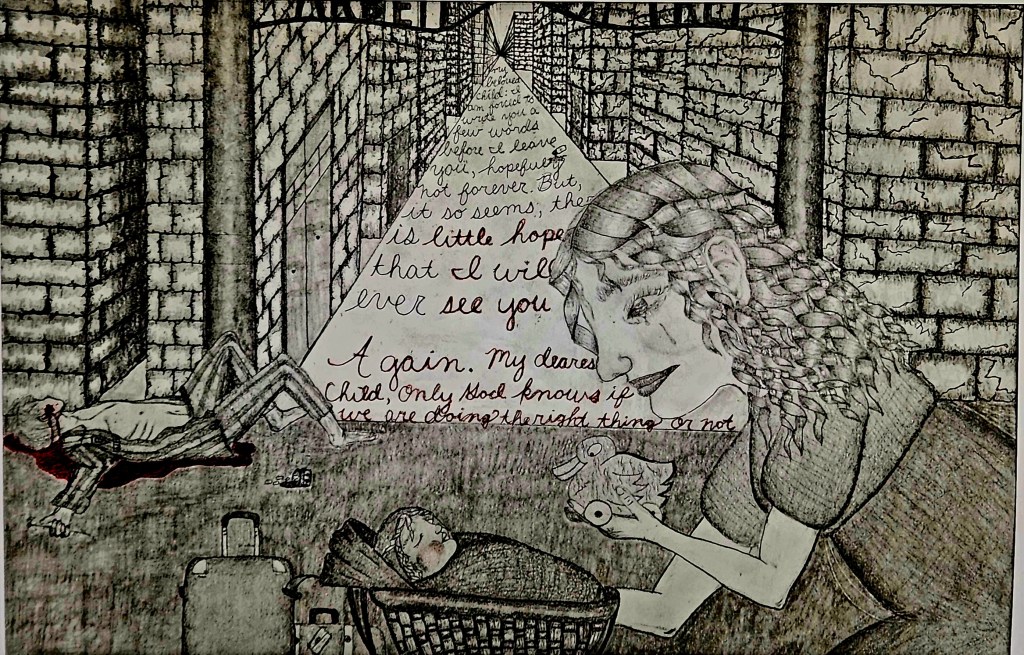 ARBEIT FREI
beloved
child: I
am forced to
write you a
few words
before I leave
you, hopefully
not forever. But,
it so seems, the
is little hope
that I will
ever see you
Again. My deares
Child, Only God knows if
we are doing the right thing or not